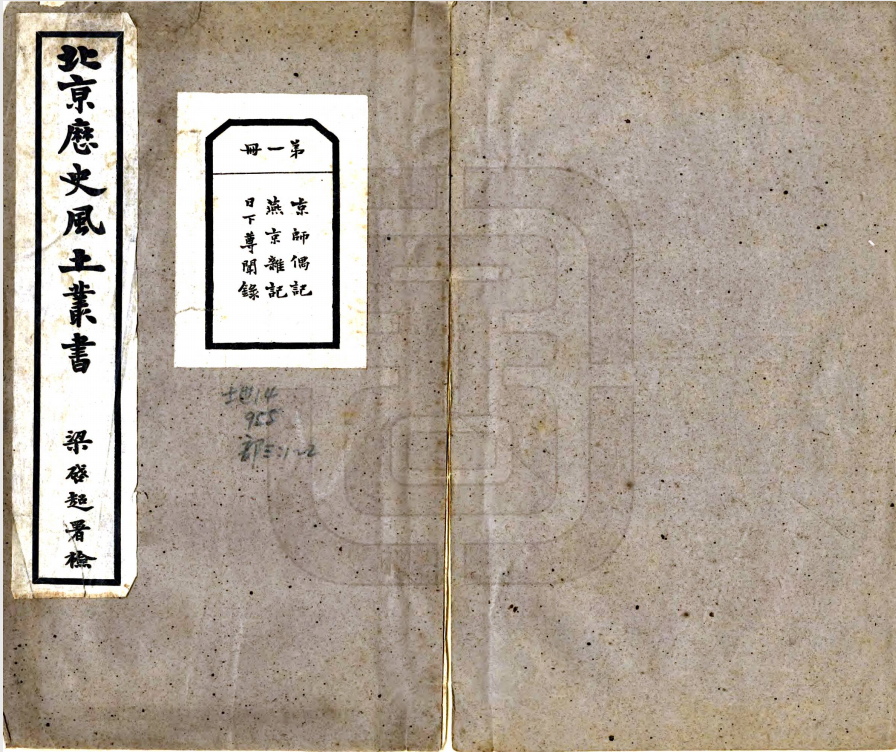 北京歷史風土叢書
梁啓超署檢
第一冊
京師偶記
燕京雜記
日下尊聞錄
地14
955